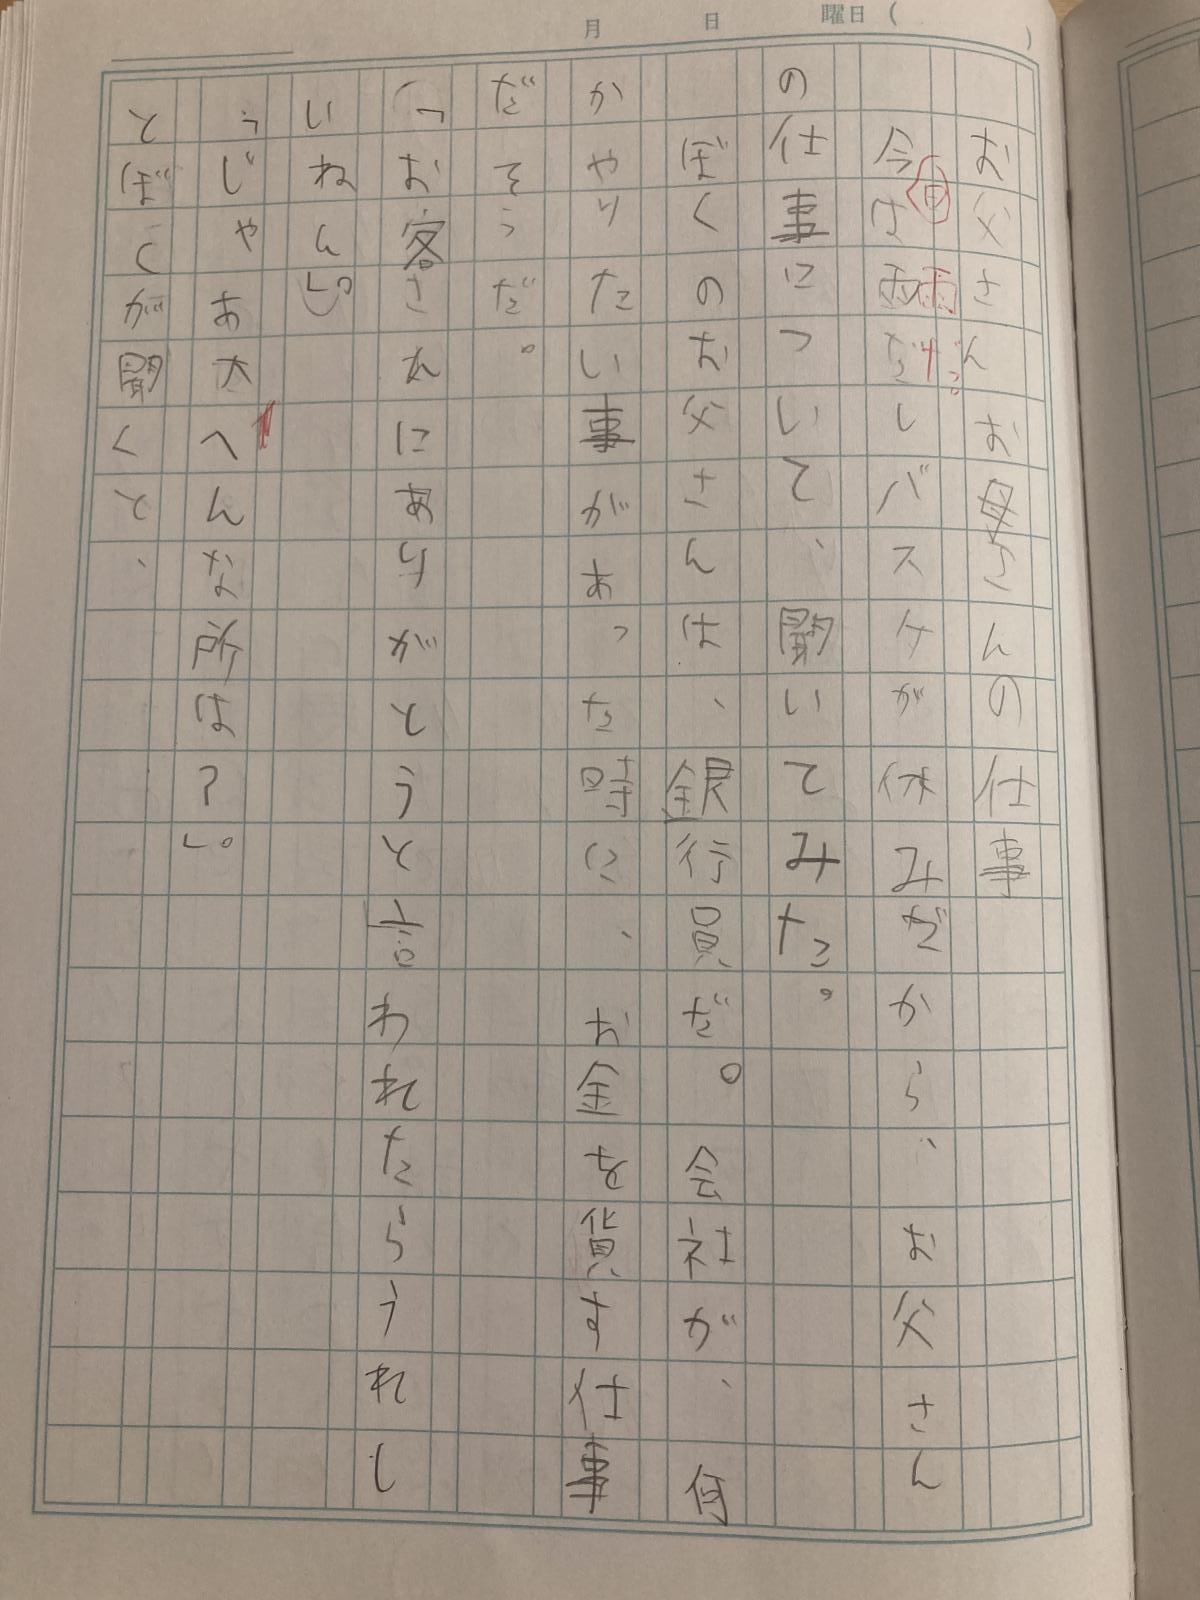 月 日 曜日( )
お父さんお母さんの仕事
今日は雨だしバスケが休みだから、お父さん
の仕事について、聞いてみた。
ぼくのお父さんは、銀行員だ。会社が、何
かやりたい事があった時に、お金を貸す仕事
だそうだ。
「お客さんにありがとうと言われたらうれし
いねん」。
「じゃあ大へんな所は?」。
とぼくが聞くと、